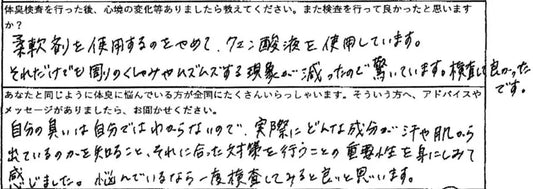 体臭検査を行った後、心境の変化等ありましたら教えてください。また検査を行って良かったと思います
か？
柔軟剤を使用するのをやめて、クエン酸液を使用しています。
それだけでも周りのくしゃみやムズムズする現象が減ったので驚いています。検査して良かった
です。
あなたと同じように体臭に悩んでいる方が全国にたくさんいらっしゃいます。そういう方へ、アドバイスや
メッセージがありましたら、お聞かせください。
自分の臭いは自分ではわからないので、実際にどんな成分が汗や肌から
出ているのかを知ること、それに合った対策を行うことの重要性を身にしみて
感じました。悩んでいるなら一度検査してみると良いと思います。